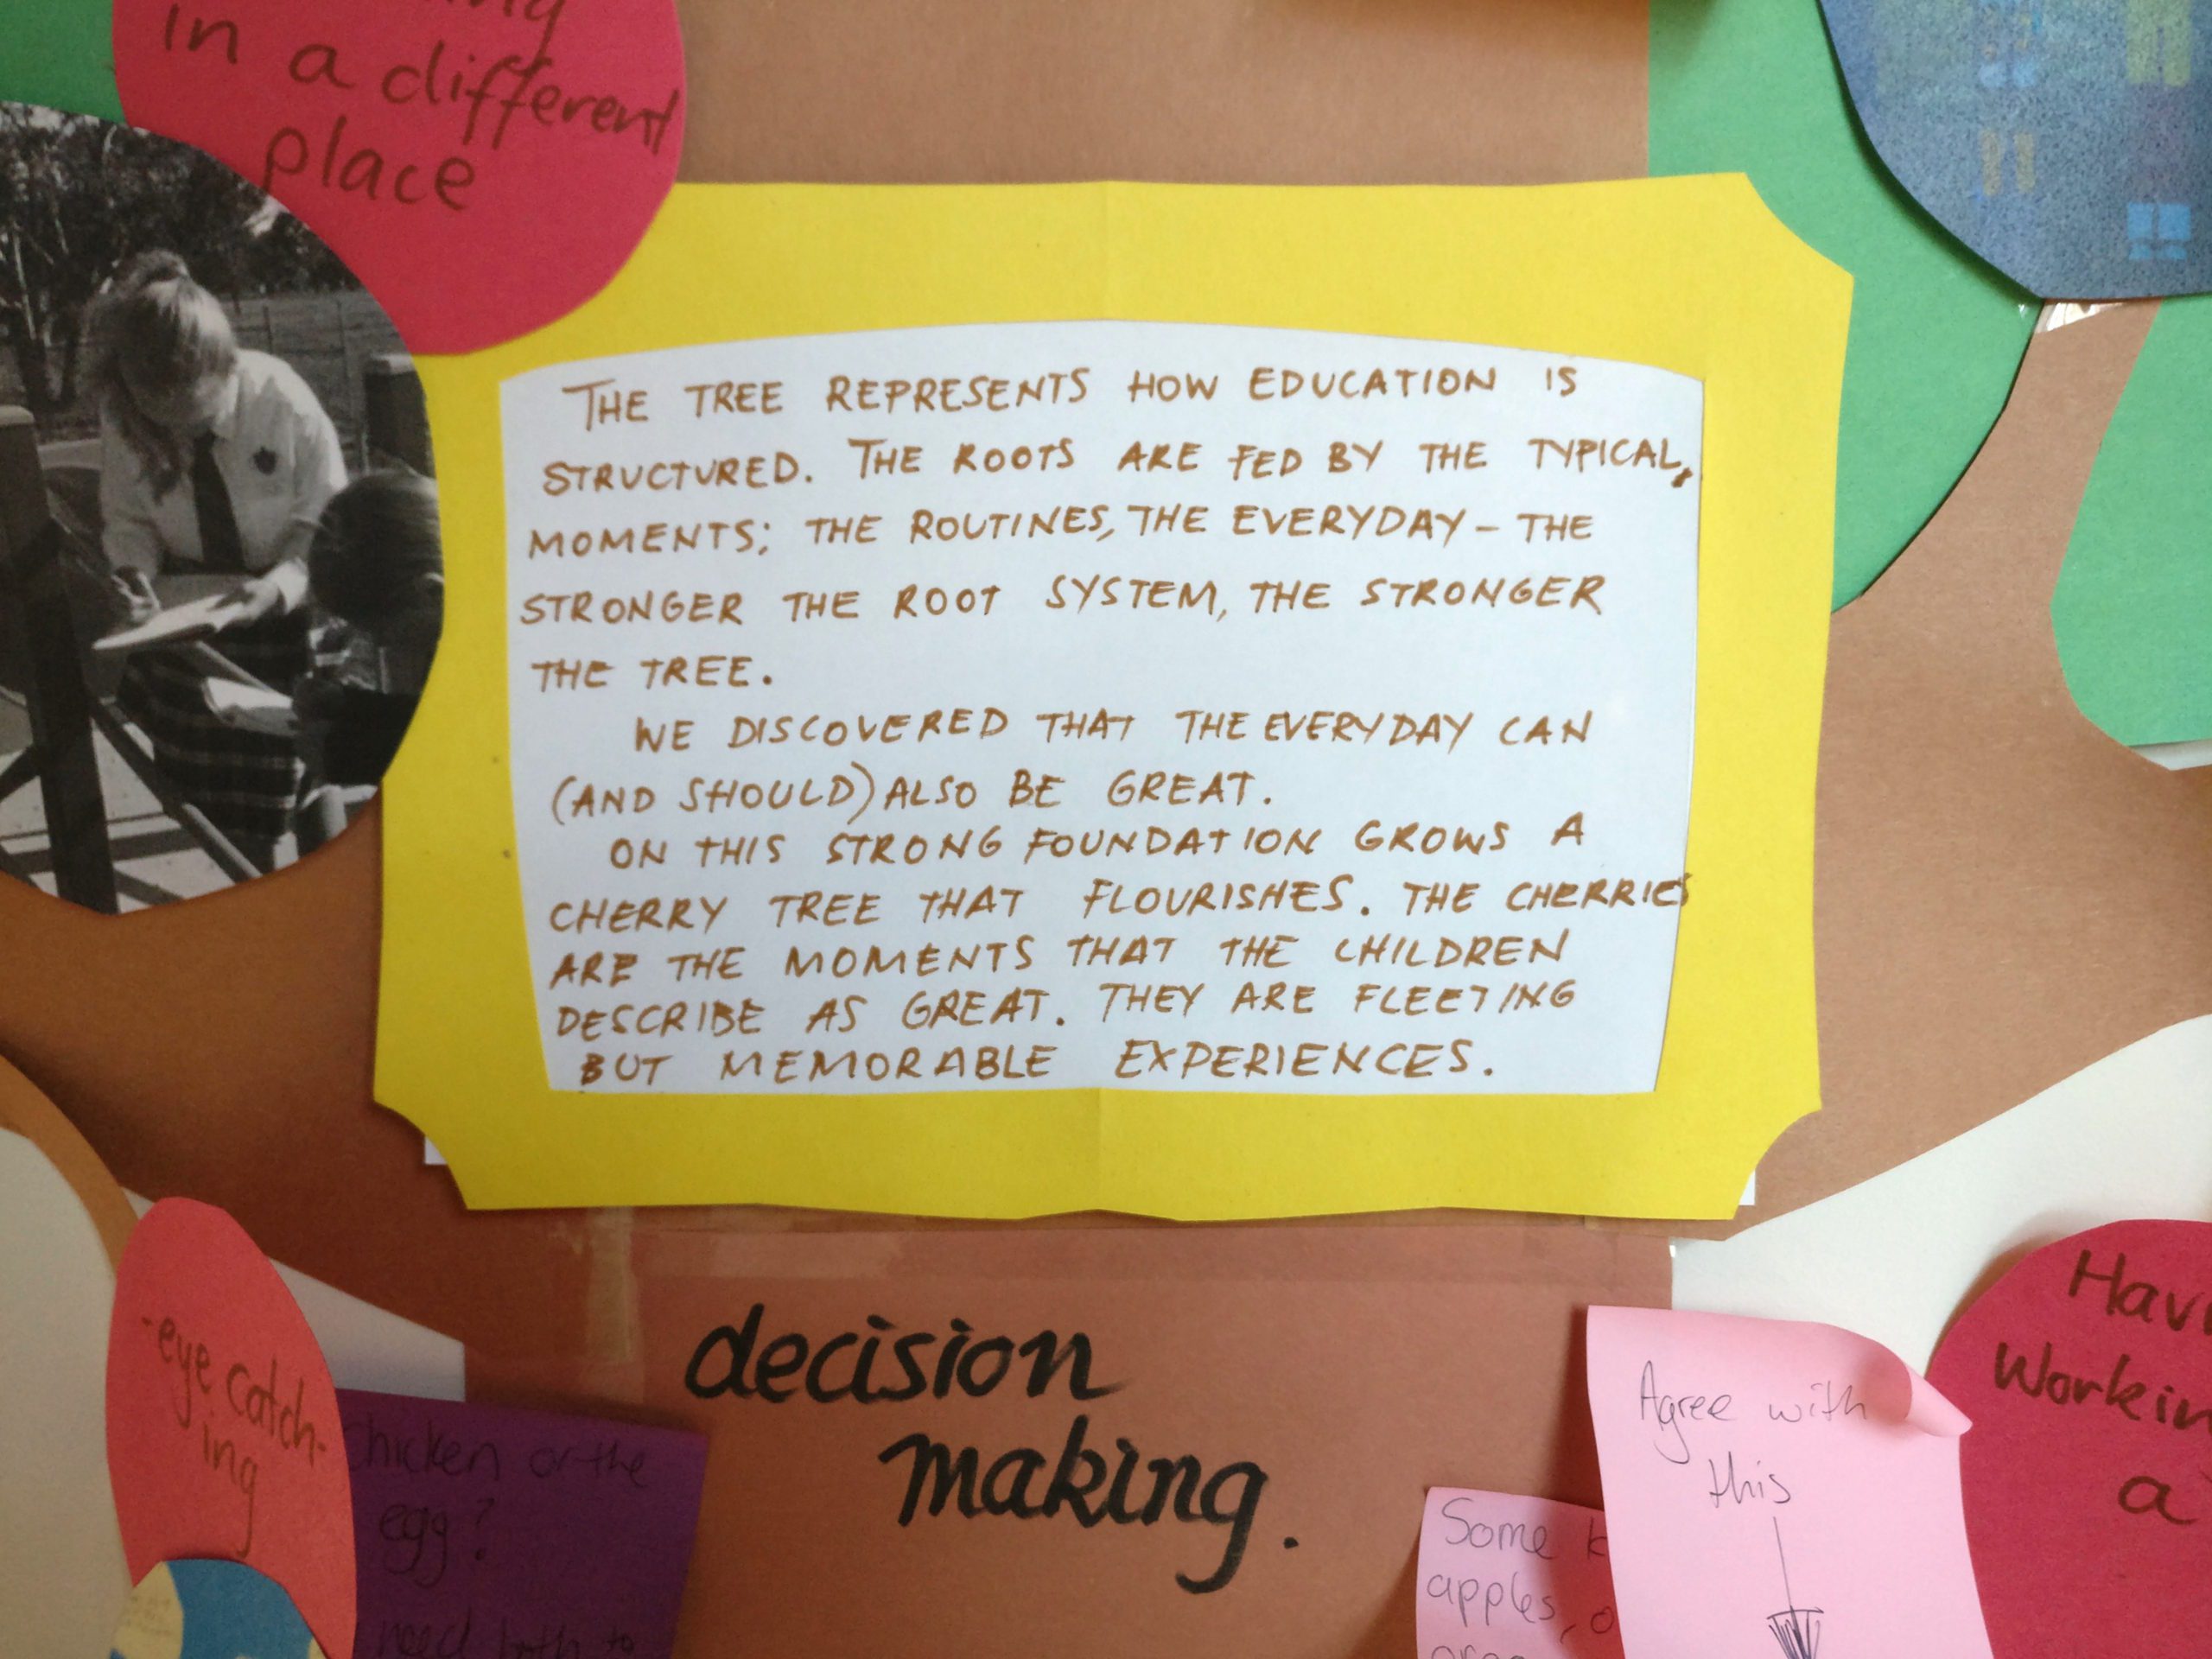 in a different
place
THE TREE REPRESENTS HOW EDUCATION IS
STRUCTURED. THE ROOTS ARE FED BY THE TYPICAL,
MOMENTS; THE ROUTINES, THE EVERYDAY – THE
STRONGER THE ROOT SYSTEM, THE STRONGER
THE TREE.
WE DISCOVERED THAT THE EVERYDAY CAN
(AND SHOULD) ALSO BE GREAT.
ON THIS STRONG FOUNDATION GROWS A
CHERRY TREE THAT FLOURISHES. THE CHERRIES
ARE THE MOMENTS THAT THE CHILDREN
DESCRIBE AS GREAT. THEY ARE FLEETING
BUT MEMORABLE EXPERIENCES.
decision
making.
-eye catch-
ing
chicken or the
egg?
need both to
Agree with
this
Some
apples,
a